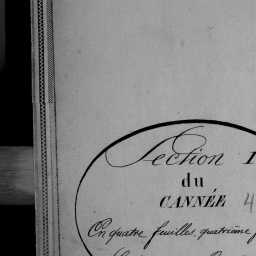 Section 1
du
CANNÉE 4
En quatre feuilles, quatrième